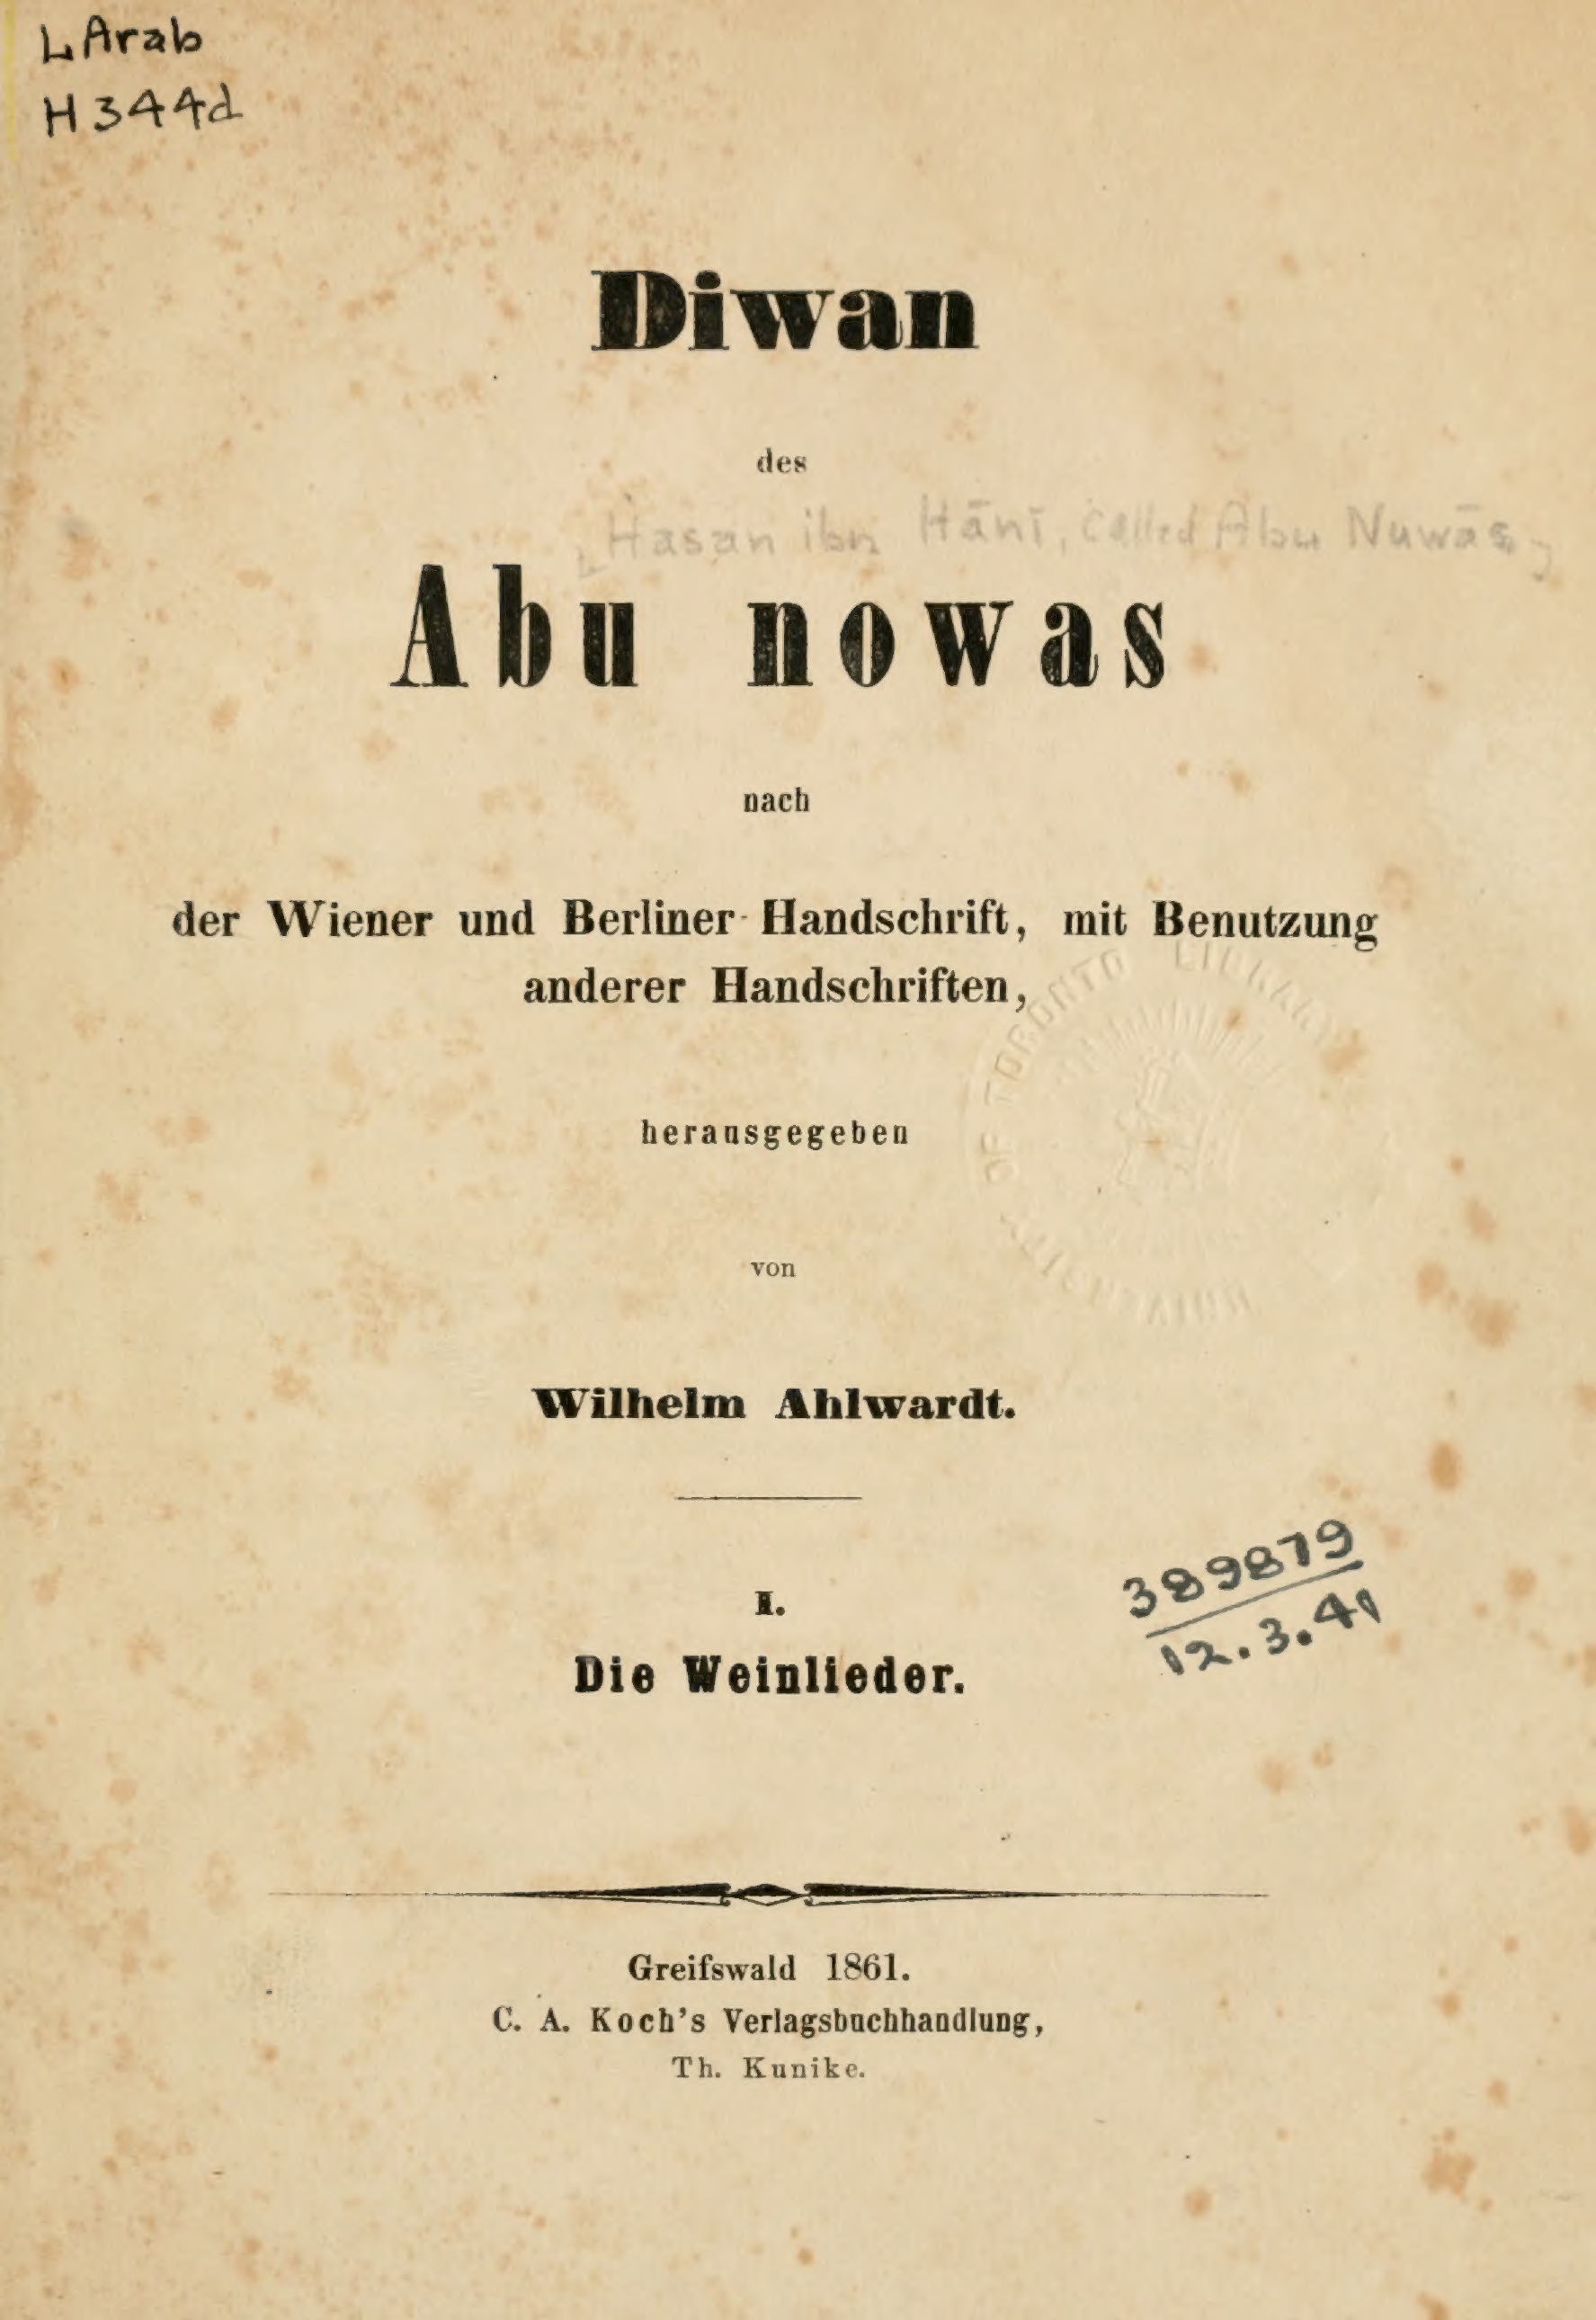 L Arab
H344d
Diwan
des
[Hasan ibn Hānī, called Abu Nuwās]
Abu nowas
nach
der Wiener und Berliner Handschrift, mit Benutzung
anderer Handschriften,
herausgegeben
von
Wilhelm Ahlwardt.
I.
Die Weinlieder.
389879
12.3.41
Greifswald 1861.
C. A. Koch's Verlagsbuchhandlung,
Th. Kunike.
UNIVERSITY OF TORONTO LIBRARY